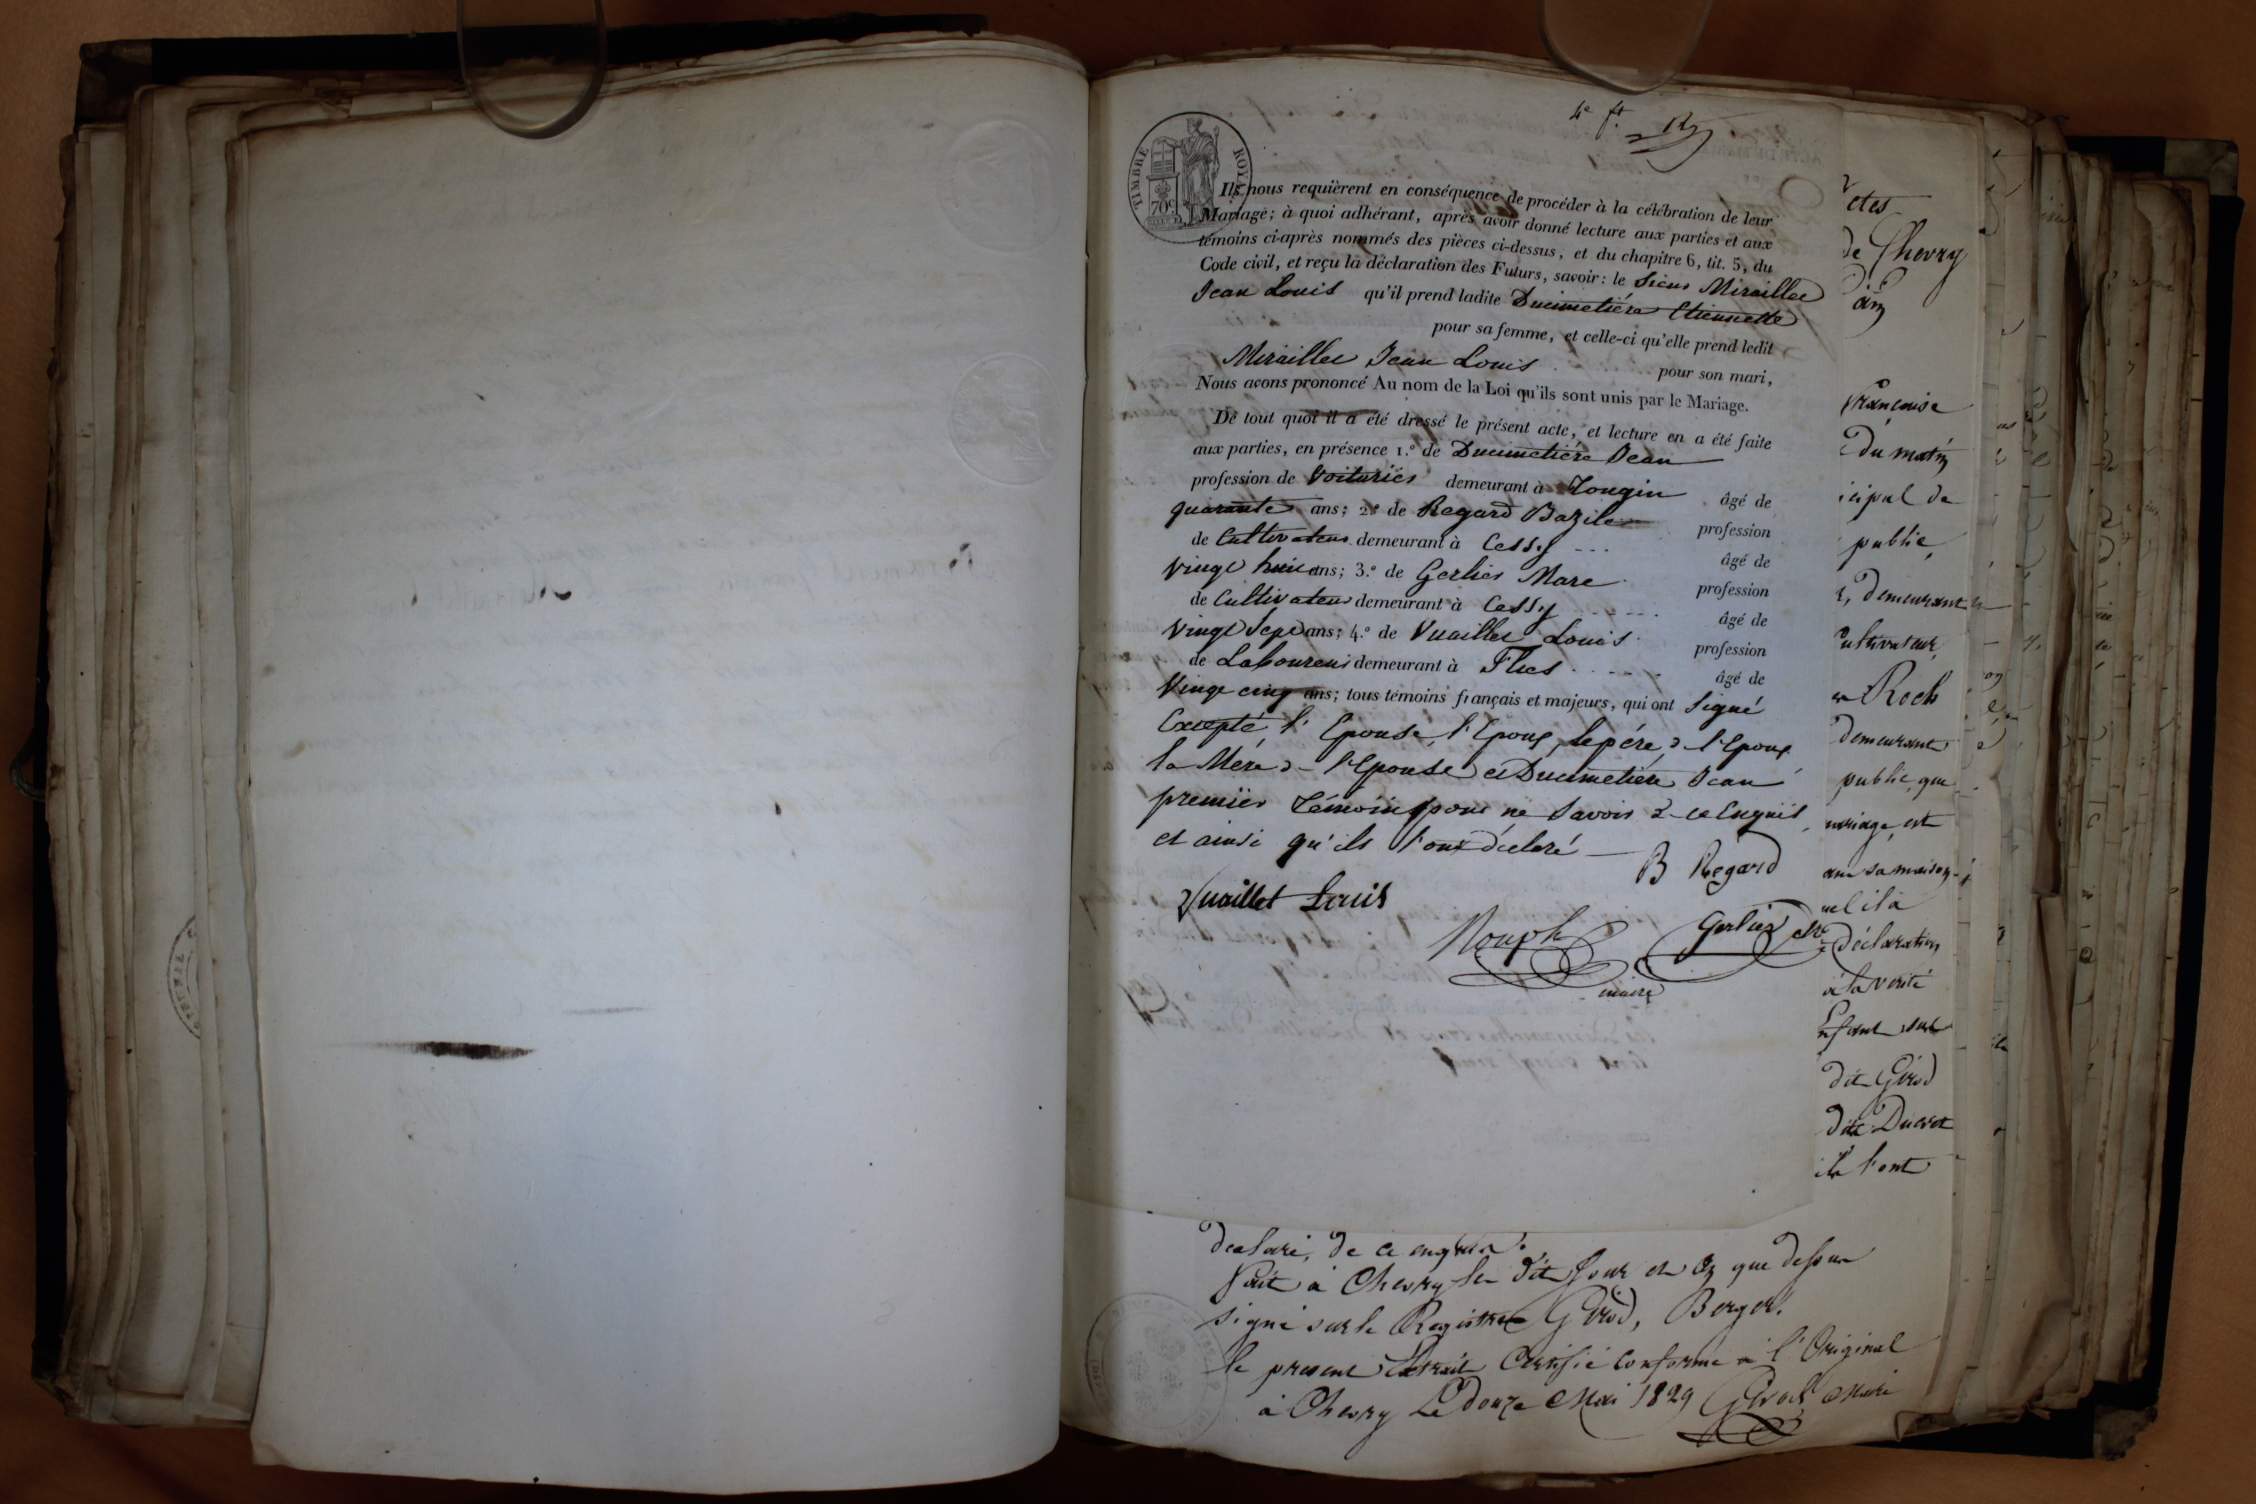 4e ft.
TIMBRE ROYAL
70c
Ils nous requièrent en conséquence de procéder à la célébration de leur
Mariage; à quoi adhérant, après avoir donné lecture aux parties et aux
témoins ci-après nommés des pièces ci-dessus, et du chapitre 6, tit. 5, du
Code civil, et reçu la déclaration des Futurs, savoir: le Sieur Miraillet
Jean Louis qu'il prend ladite Ducimetière Etiennette
pour sa femme, et celle-ci qu'elle prend ledit
Miraillet Jean Louis pour son mari,
Nous avons prononcé Au nom de la Loi qu'ils sont unis par le Mariage.
De tout quoi il a été dressé le présent acte, et lecture en a été faite
aux parties, en présence 1.º de Ducimetière Jean
profession de Voiturier demeurant à Tougin âgé de
quarante ans; 2.º de Regard Bazile profession
de Cultivateur demeurant à Cessy âgé de
vingt huit ans; 3.º de Gerlier Marc profession
de Cultivateur demeurant à Cessy âgé de
Vingt Sept ans; 4.º de Vuaillet Louis profession
de Laboureur demeurant à Flies âgé de
Vingt cinq ans; tous témoins français et majeurs, qui ont Signé
Excepté l'Epouse, l'Epoux, le père de l'Epoux
la Mère de l'Epouse et Ducimetière Jean
premier Témoin pour ne Savoir de ce Enquis
et ainsi qu'ils l'ont déclaré
B Regard
Vuaillet Louis
Gerlier
maire
etes
de Chevry
françoise
du matin
icipal de
public,
r, demeurant
Cultivateur,
Roch
demeurant
public, que
mariage, est
dans sa maison
uel il a
déclaration
à la vérité
Enfant
dit Girod
dite Ducret
ils l'ont
declaré, de ce enquis.
Fait à Chevry les dit Jour et an que dessus
signé sur le Registre Girod, Berger.
le present Extrait Certifié Conforme à l'Original
à Chevry Le douze Mai 1829 Girod Maire